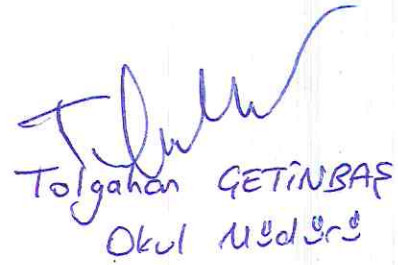 Tolgahan ÇETİNBAŞ
Okul Müdürü